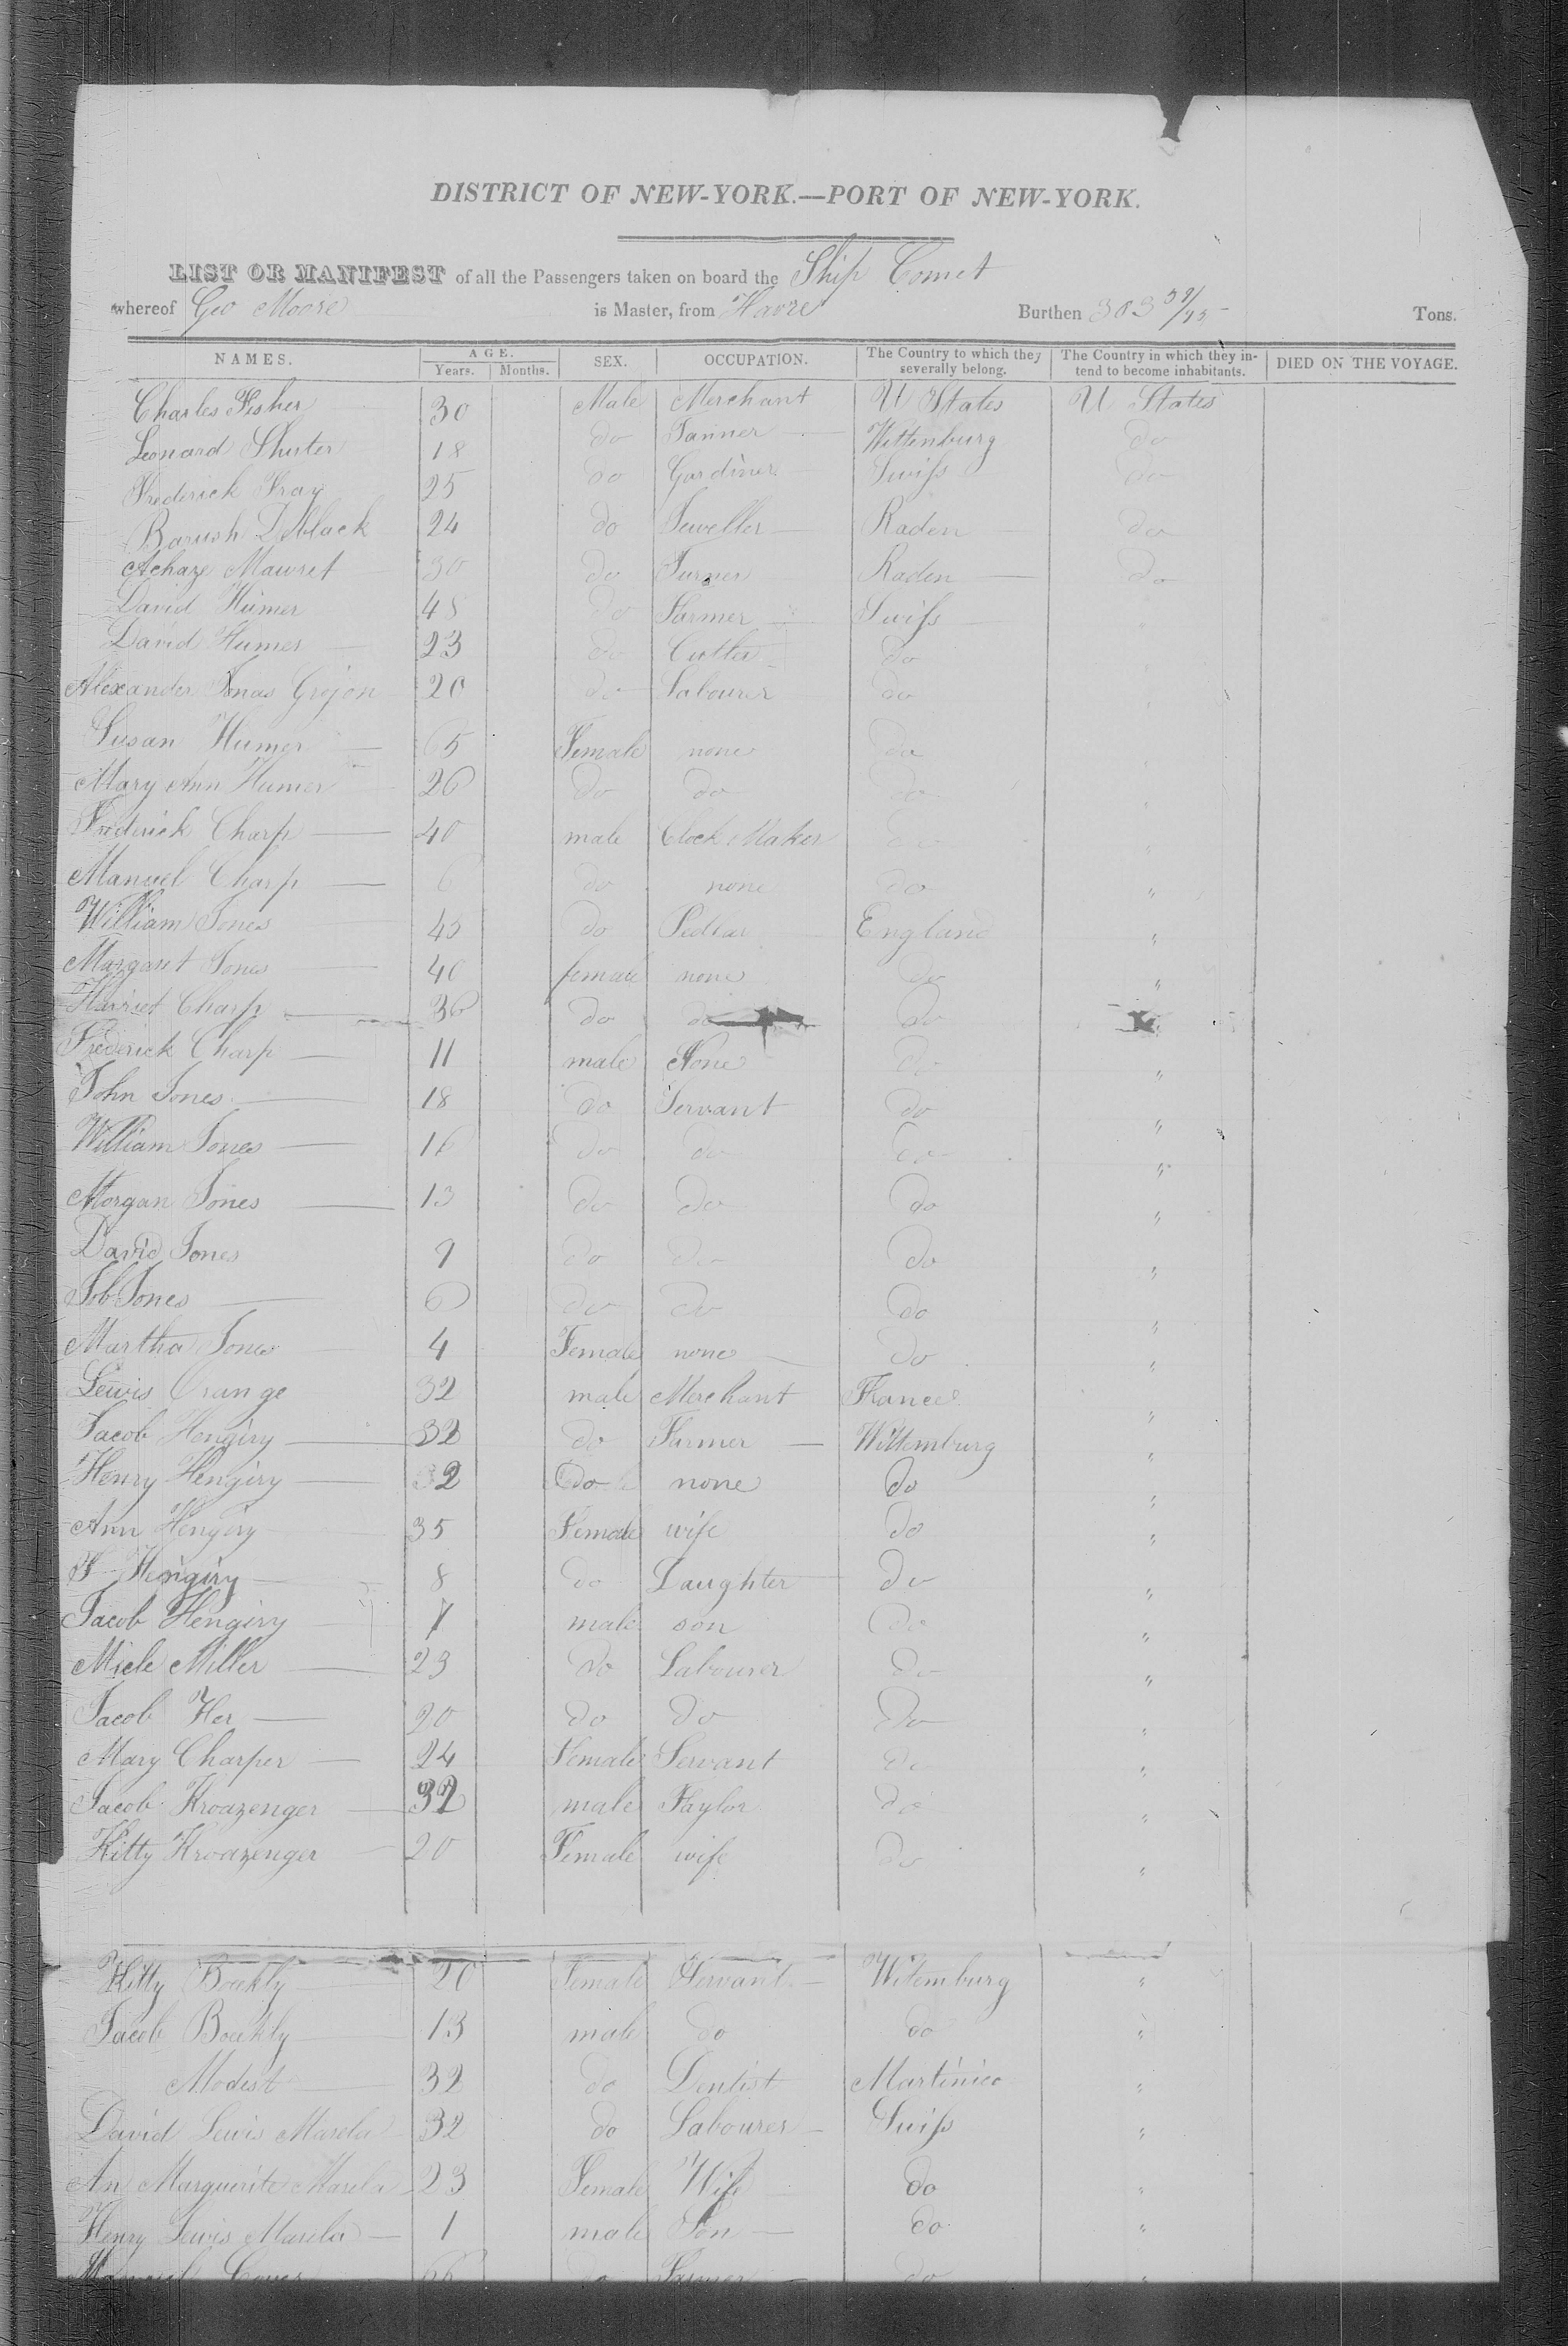 DISTRICT OF NEW-YORK.—PORT OF NEW-YORK.
LIST OR MANIFEST of all the Passengers taken on board the Ship Comet
whereof Geo Moore is Master, from Havre Burthen 303 Tons.
NAMES. AGE. Years. Months. SEX. OCCUPATION. The Country to which they severally belong. The Country in which they intend to become inhabitants. DIED ON THE VOYAGE.
Charles Fisher 30 Male Merchant U States U States
Leonard Shuter 18 do Tanner Wittenburg do
Frederick Fray 25 do Gardiner Swiss do
Barush 24 do Jeweller Raden do
Achaze Mawret 30 do Turner Raden do
David Humer 48 do Farmer Swiss "
David Humer 23 do Cutler do "
Alexander Jonas Grojon 20 do Labourer do "
Susan Humer 65 Female none do "
Mary Ann Humer 26 do do do "
Frederick Charp 40 male Clock Maker do "
Manuel Charp 6 do none do "
William Jones 45 do Pedlar England "
Margaret Jones 40 female none do "
Harriet Charp 36 do do do
Frederick Charp 11 male None do "
John Jones 18 do Servant do "
William Jones 16 do do do "
Morgan Jones 13 do do do "
David Jones 9 do do do "
Job Jones 6 do do do "
Martha Jones 4 Female none do "
Lewis Orange 32 male Merchant France "
Jacob Hengiry 32 do Farmer Wittemburg "
Henry Hengiry 32 do none do "
Ann Hengiry 35 Female wife do "
F Hengiry 8 do Daughter do "
Jacob Hengiry 7 male son do "
Miele Miller 23 do Labourer do "
Jacob Her 20 do do do "
Mary Charper 24 Female Servant do "
Jacob Kroazenger 32 male Taylor do "
Kitty Kroazenger 20 Female wife do "
Kitty Boekly 20 Female Servant Witemburg "
Jacob Boekly 13 male do do "
Modest 32 do Dentist Martinico "
David Lewis Marela 32 do Labourer Swiss "
An Marguerite Marela 23 Female Wife do "
Henry Lewis Marela 1 male Son do "
66 do Farmer do "